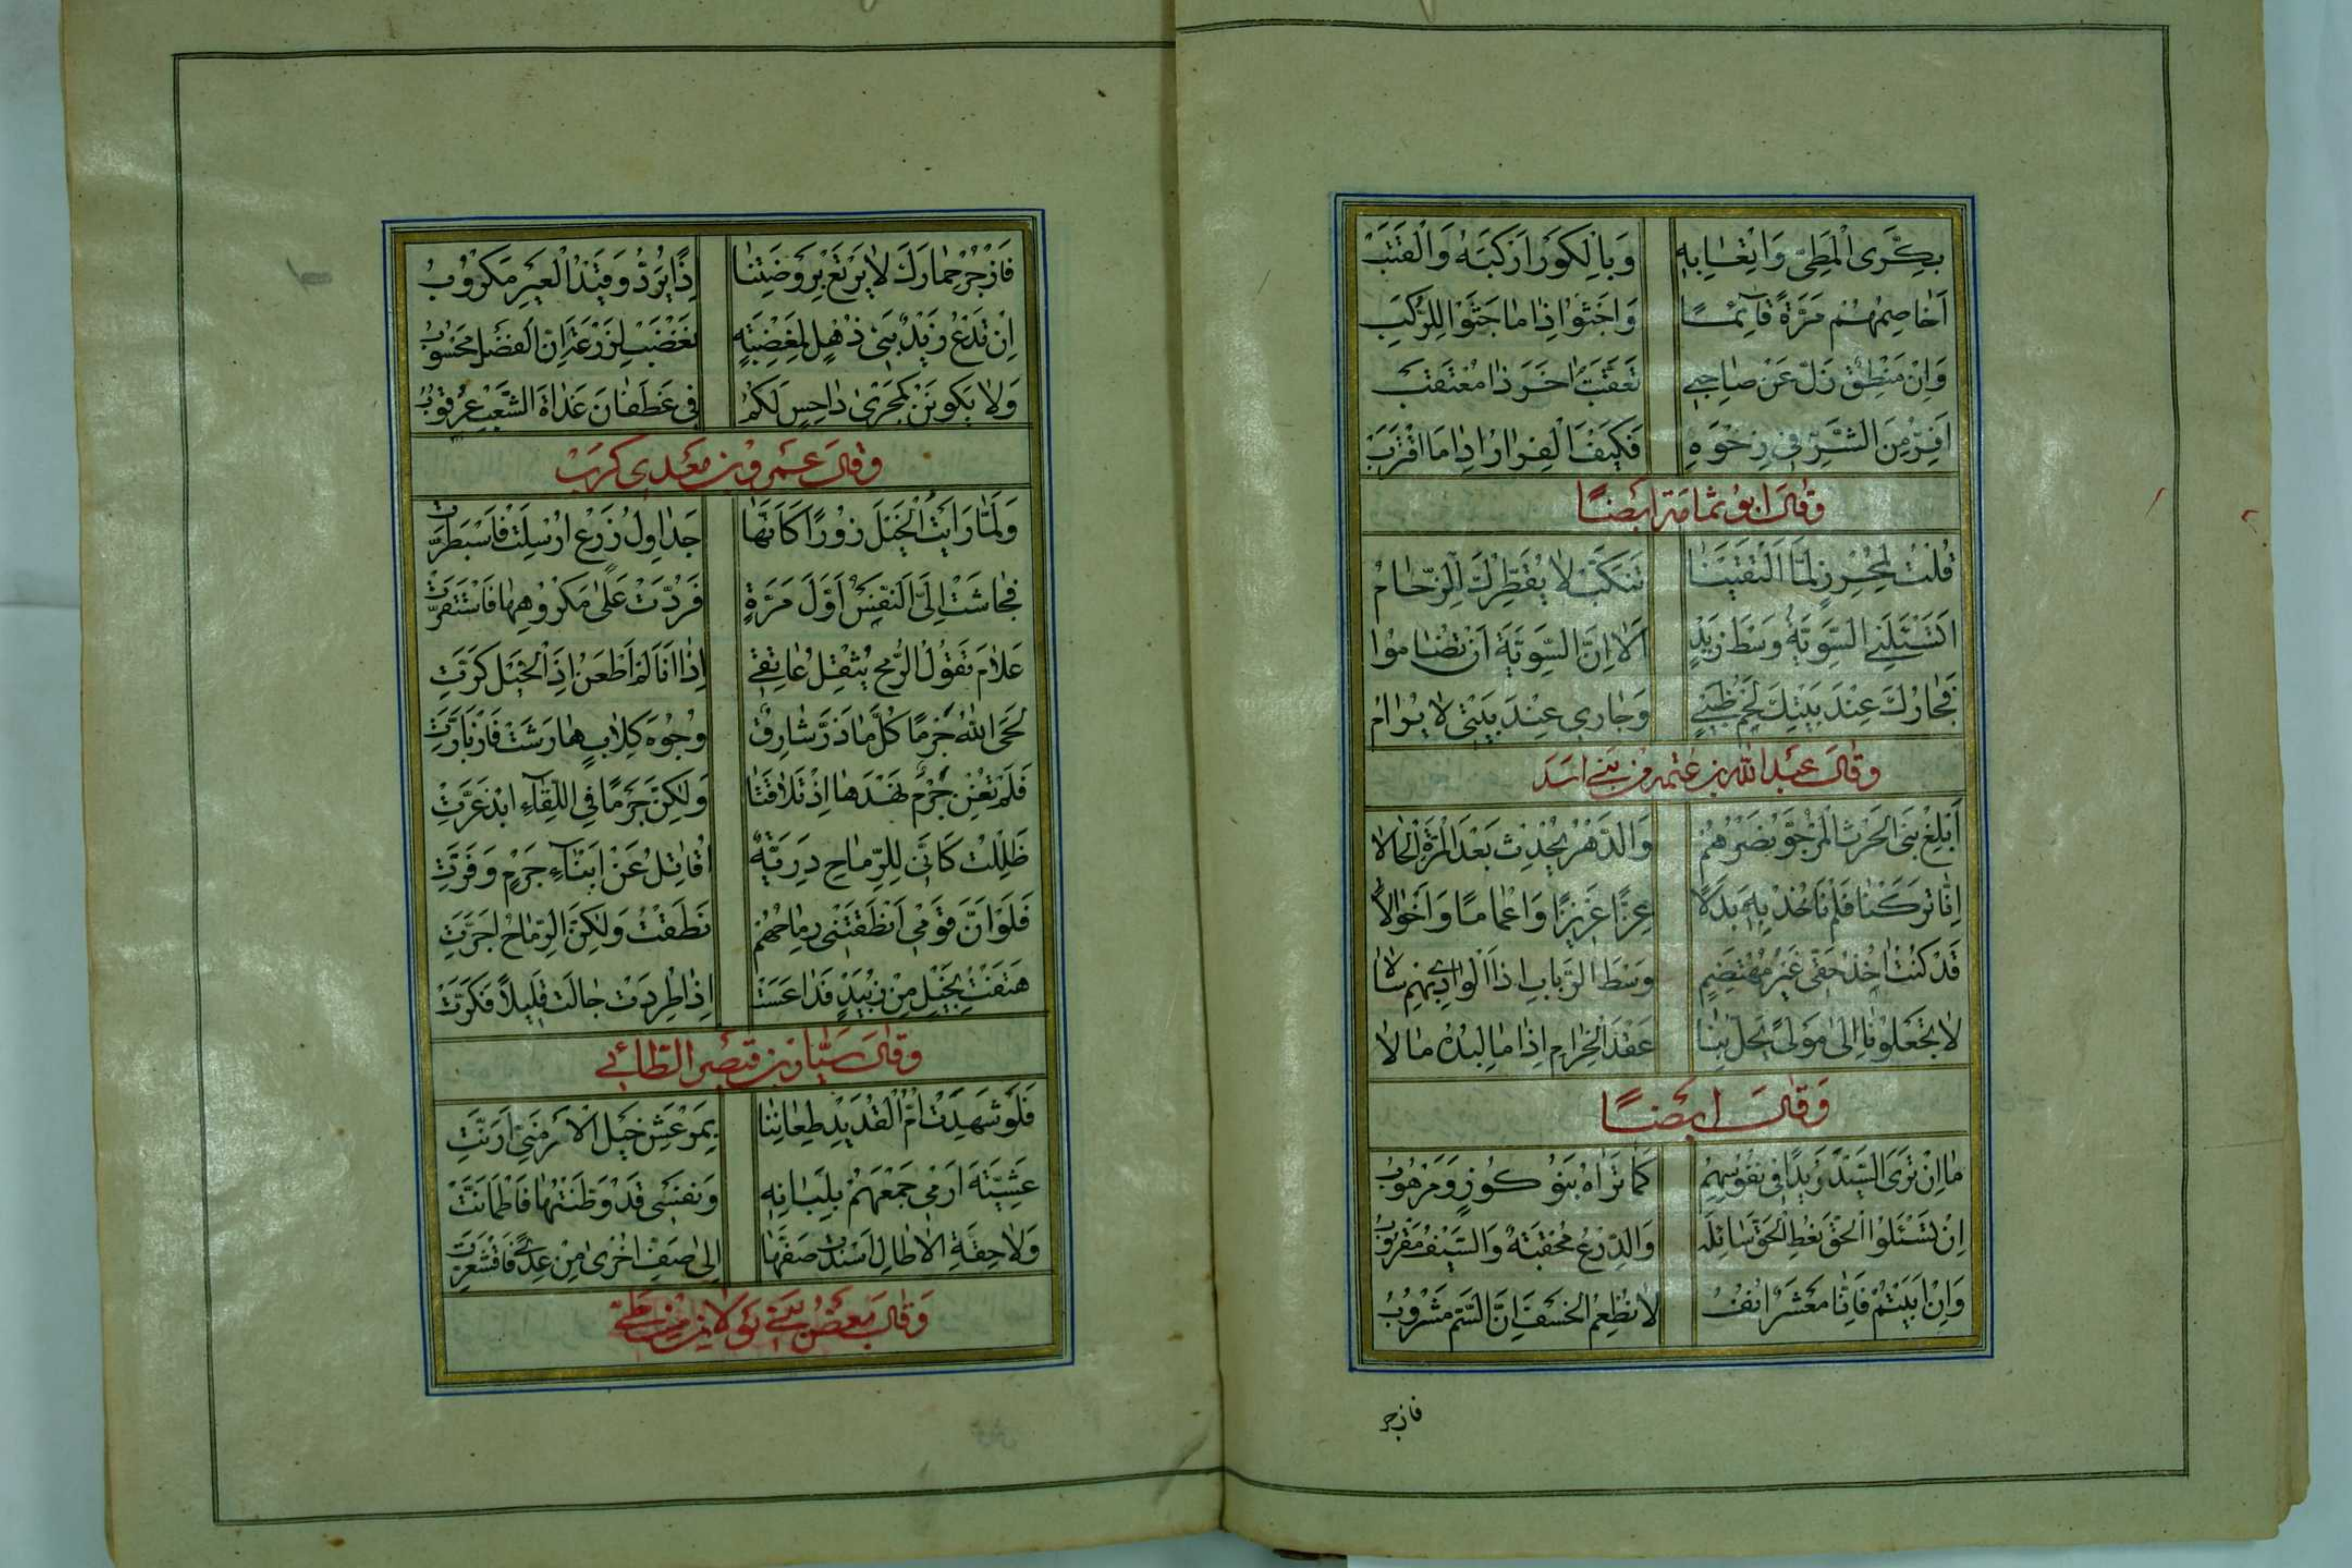 بِكَرِّى الْمَطِىَّ وَاِتْعَابِهِ وَبِالْكَوْرِ اَرْكَبُهُ وَالْقَتَبْ
اُخَاصِمُهُمْ مَرَّةً قَآئِمًا وَاَجْثُوْ اِذَا مَا جَثَوْا لِلرُّكَبْ
وَاِنْ مَنْطِقٌ زَلَّ عَنْ صَاحِبِى تَعَقَّبْتُ اٰخَرَ ذَا مُعْتَقَبْ
اَفِرُّ مِنَ الشَّرِّ فِى رِخْوَةٍ فَكَيْفَ الْفِرَارُ اِذَا مَا اقْتَرَبْ
وقال ابو ثمامة ايضًا
قُلْتُ لِمُحْرِزٍ لَمَّا الْتَقَيْنَا تَنَكَّبْ لَا يُقَطِّرْكَ الزِّحَامُ
اَتَسْئَلُنِى السَّوِيَّةَ وَسْطَ زَيْدٍ اَلَا اِنَّ السَّوِيَّةَ اَنْ تُضَامُوا
فَجَارُكَ عِنْدَ بَيْتِكَ لَحْمُ ظَبْيٍ وَجَارِى عِنْدَ بَيْتِى لَا يُرَامُ
وقال عبد الله بن عنمه من بنى اسد
اَبْلِغْ بَنِى الْحَرْثِ الْمَرْجُوَّ نَصْرُهُمُ وَالدَّهْرُ يُحْدِثُ بَعْدَ الْمَرَّةِ الْحَالَا
اِنَّا تَرَكْنَا فَلَمْ نَاْخُذْ بِهِ بَدَلًا عِزًّا عَزِيْزًا وَاَعْمَامًا وَاَخْوَالًا
قَدْ كُنْتُ اٰخُذُ حَقِّى غَيْرَ مُهْتَضَمٍ وَسْطَ الرَّبَابِ اِذَا الْوَادِى بِهِمْ سَالَا
لَا تَجْعَلُوْنَا اِلٰى مَوْلًى يَحُلُّ بِنَا عَقْدَ الْحِزَامِ اِذَا مَا لِبْدُهُ مَالَا
وَقَالَ ايضًا
مَا اِنْ تَرَى السَّيِّدَ زَيْدًا فِى نُفُوْسِهِمُ كَمَا تَرَاهُ بَنُوْ كُوْزٍ وَمَرْهُوْبُ
اِنْ تَسْئَلُوْا الْحَقَّ نُعْطِ الْحَقَّ سَائِلَهُ وَالدِّرْعُ مُحْقَبَةٌ وَالسَّيْفُ مَقْرُوْبُ
وَاِنْ اَبَيْتُمْ فَاِنَّا مَعْشَرٌ اُنُفٌ لَا نَطْعَمُ الْخَسْفَ اِنَّ السَّمَّ مَشْرُوْبُ
فازجر
فَازْجُرْ حِمَارَكَ لَا يَرْتَعْ بِرَوْضَتِنَا اِذًا يُرَدُّ وَقَيْدُ الْعَيْرِ مَكْرُوْبُ
اِنْ تَدْعُ زَيْدٌ بَنِى ذُهْلٍ لِمَغْضَبَةٍ نَغْضَبْ لِزُرْعَةَ اِنَّ الْفَضْلَ مَحْسُوْبُ
وَلَا يَكُوْنَنْ كَمَجْرٰى دَاحِسٍ لَكُمُ فِى غَطَفَانَ غَدَاةَ الشَّعْبِ عُرْقُوْبُ
وقال عمرو بن معدى كرب
وَلَمَّا رَاَيْتُ الْخَيْلَ زُوْرًا كَاَنَّهَا جَدَاوِلُ زَرْعٍ اُرْسِلَتْ فَاسْبَطَرَّتِ
فَجَاشَتْ اِلَىَّ النَّفْسُ اَوَّلَ مَرَّةٍ فَرُدَّتْ عَلٰى مَكْرُوْهِهَا فَاسْتَقَرَّتِ
عَلَامَ تَقُوْلُ الرُّمْحُ يُثْقِلُ عَاتِقِى اِذَا اَنَا لَمْ اَطْعَنْ اِذَا الْخَيْلُ كَرَّتِ
لَحَى اللهُ جَرْمًا كُلَّمَا ذَرَّ شَارِقٌ وُجُوْهَ كِلَابٍ هَارَشَتْ فَازْبَاَرَّتِ
فَلَمْ تُغْنِ جَرْمٌ نَهْدَهَا اِذْ تَلَاقَتَا وَلٰكِنَّ جَرْمًا فِى اللِّقَآءِ ابْذَعَرَّتِ
ظَلِلْتُ كَاَنِّى لِلرِّمَاحِ دَرِيَّةٌ اُقَاتِلُ عَنْ اَبْنَآءِ جَرْمٍ وَفَرَّتِ
فَلَوْ اَنَّ قَوْمِى اَنْطَقَتْنِى رِمَاحُهُمْ نَطَقْتُ وَلٰكِنَّ الرِّمَاحَ اَجَرَّتِ
هَتَفْتُ بِخَيْلٍ مِنْ زُبَيْدٍ فَدَاعَسَتْ اِذَا طُرِدَتْ جَالَتْ قَلِيْلًا فَكَرَّتِ
وقال سيار بن قصير الطائى
فَلَوْ شَهِدَتْ اُمُّ الْقُدَيْدِ طِعَانَنَا بِمَرْعَشَ خَيْلَ الْاَرْمَنِىِّ اَرَنَّتِ
عَشِيَّةَ اَرْمِى جَمْعَهُمْ بِلَبَانِهِ وَنَفْسِى قَدْ وَطَّنْتُهَا فَاطْمَاَنَّتْ
وَلَاحِقَةِ الْاٰطَالِ اَسْنَدْتُ صَفَّهَا اِلٰى صَفِّ اُخْرٰى مِنْ عِدًى فَاقْشَعَرَّتِ
وَقَالَ بَعْضُ بَنِى بَوْلَانَ مِنْ طَىّ